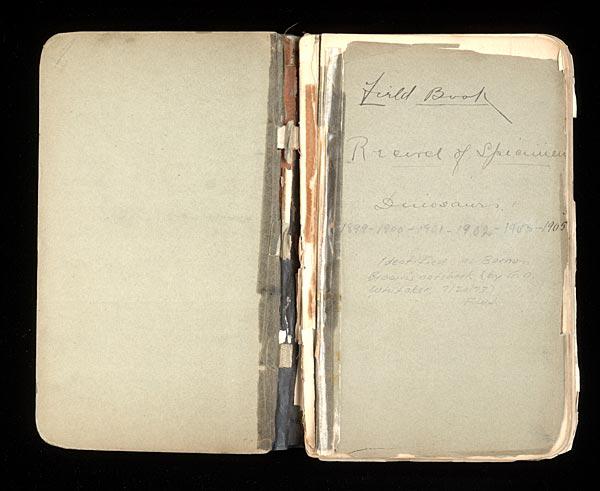 Field Book
Record of Specimen
Dinosaurs.
1899-1900-1901-1902-1903-1905
Identified as Barnum
Brown's notebook (by G.O.
Whitaker, 7/20/73)